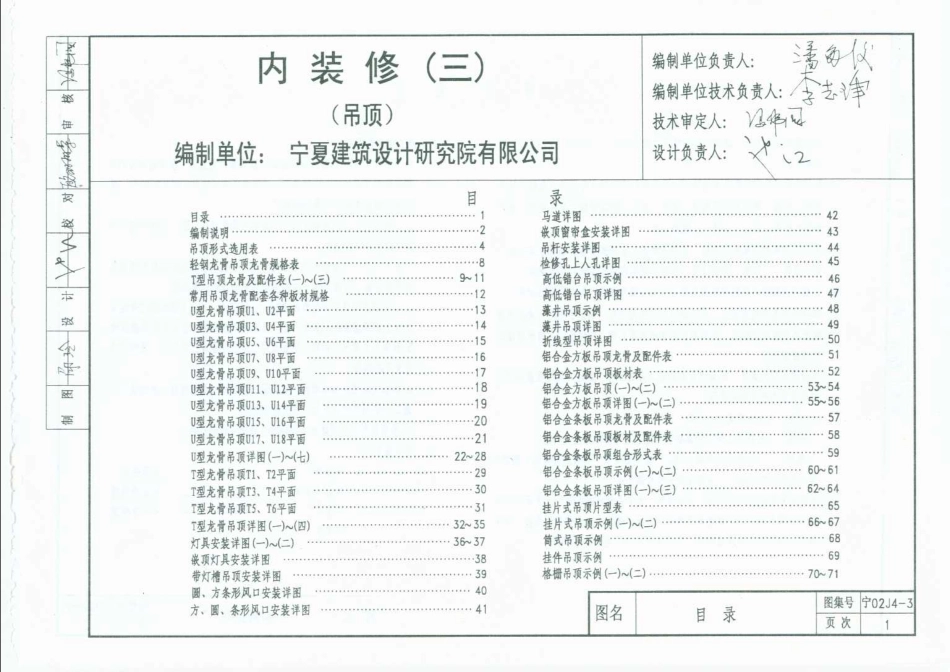 内装修(三)
(吊顶)
编制单位: 宁夏建筑设计研究院有限公司
编制单位负责人:
编制单位技术负责人:
技术审定人:
设计负责人:
审核
校对
设计
制图
目录
目录 1
编制说明 2
吊顶形式选用表 4
轻钢龙骨吊顶龙骨规格表 8
T型吊顶龙骨及配件表(一)~(三) 9~11
常用吊顶龙骨配套各种板材规格 12
U型龙骨吊顶U1、U2平面 13
U型龙骨吊顶U3、U4平面 14
U型龙骨吊顶U5、U6平面 15
U型龙骨吊顶U7、U8平面 16
U型龙骨吊顶U9、U10平面 17
U型龙骨吊顶U11、U12平面 18
U型龙骨吊顶U13、U14平面 19
U型龙骨吊顶U15、U16平面 20
U型龙骨吊顶U17、U18平面 21
U型龙骨吊顶详图(一)~(七) 22~28
T型龙骨吊顶T1、T2平面 29
T型龙骨吊顶T3、T4平面 30
T型龙骨吊顶T5、T6平面 31
T型龙骨吊顶详图(一)~(四) 32~35
灯具安装详图(一)~(二) 36~37
嵌顶灯具安装详图 38
带灯槽吊顶安装详图 39
圆、方条形风口安装详图 40
方、圆、条形风口安装详图 41
马道详图 42
嵌顶窗帘盒安装详图 43
吊杆安装详图 44
检修孔上人孔详图 45
高低错台吊顶示例 46
高低错台吊顶详图 47
藻井吊顶示例 48
藻井吊顶详图 49
折线型吊顶详图 50
铝合金方板吊顶龙骨及配件表 51
铝合金方板吊顶板材表 52
铝合金方板吊顶(一)~(二) 53~54
铝合金方板吊顶详图(一)~(二) 55~56
铝合金条板吊顶龙骨及配件表 57
铝合金条板吊顶板材及配件表 58
铝合金条板吊顶组合形式表 59
铝合金条板吊顶示例(一)~(二) 60~61
铝合金条板吊顶详图(一)~(三) 62~64
挂片式吊顶片型表 65
挂片式吊顶示例(一)~(二) 66~67
筒式吊顶示例 68
挂件吊顶示例 69
格栅吊顶示例(一)~(二) 70~71
图名 目录 图集号 宁02J4-3
页次 1